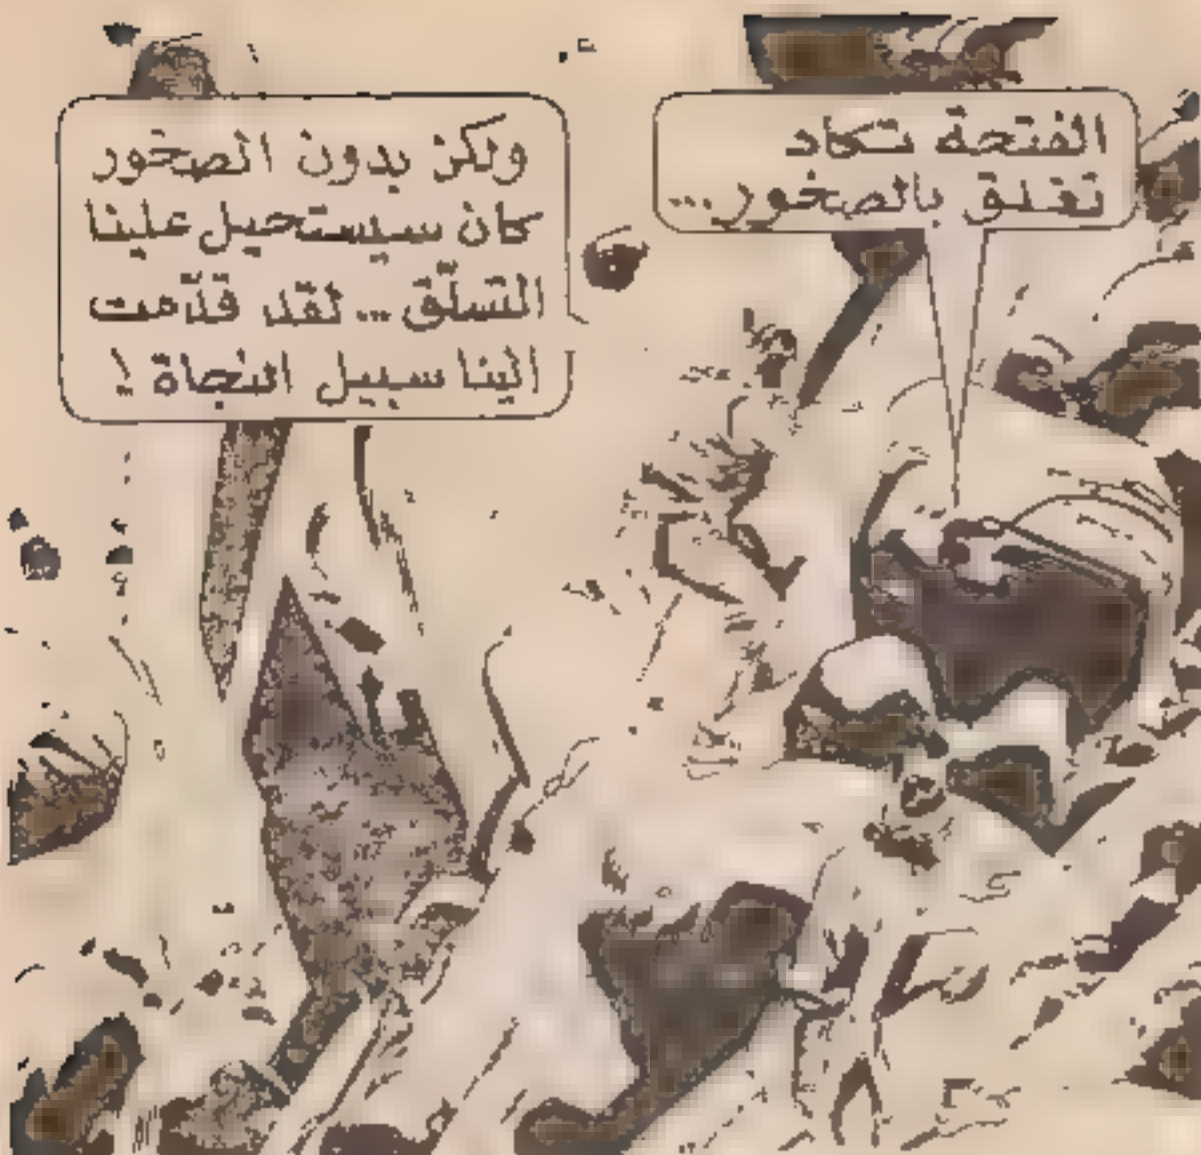 الفتحة تكاد
تغلق بالصخور...
ولكن بدون الصخور
كان سيستحيل علينا
التسلّق... لقد قدّمت
الينا سبيل النجاة !